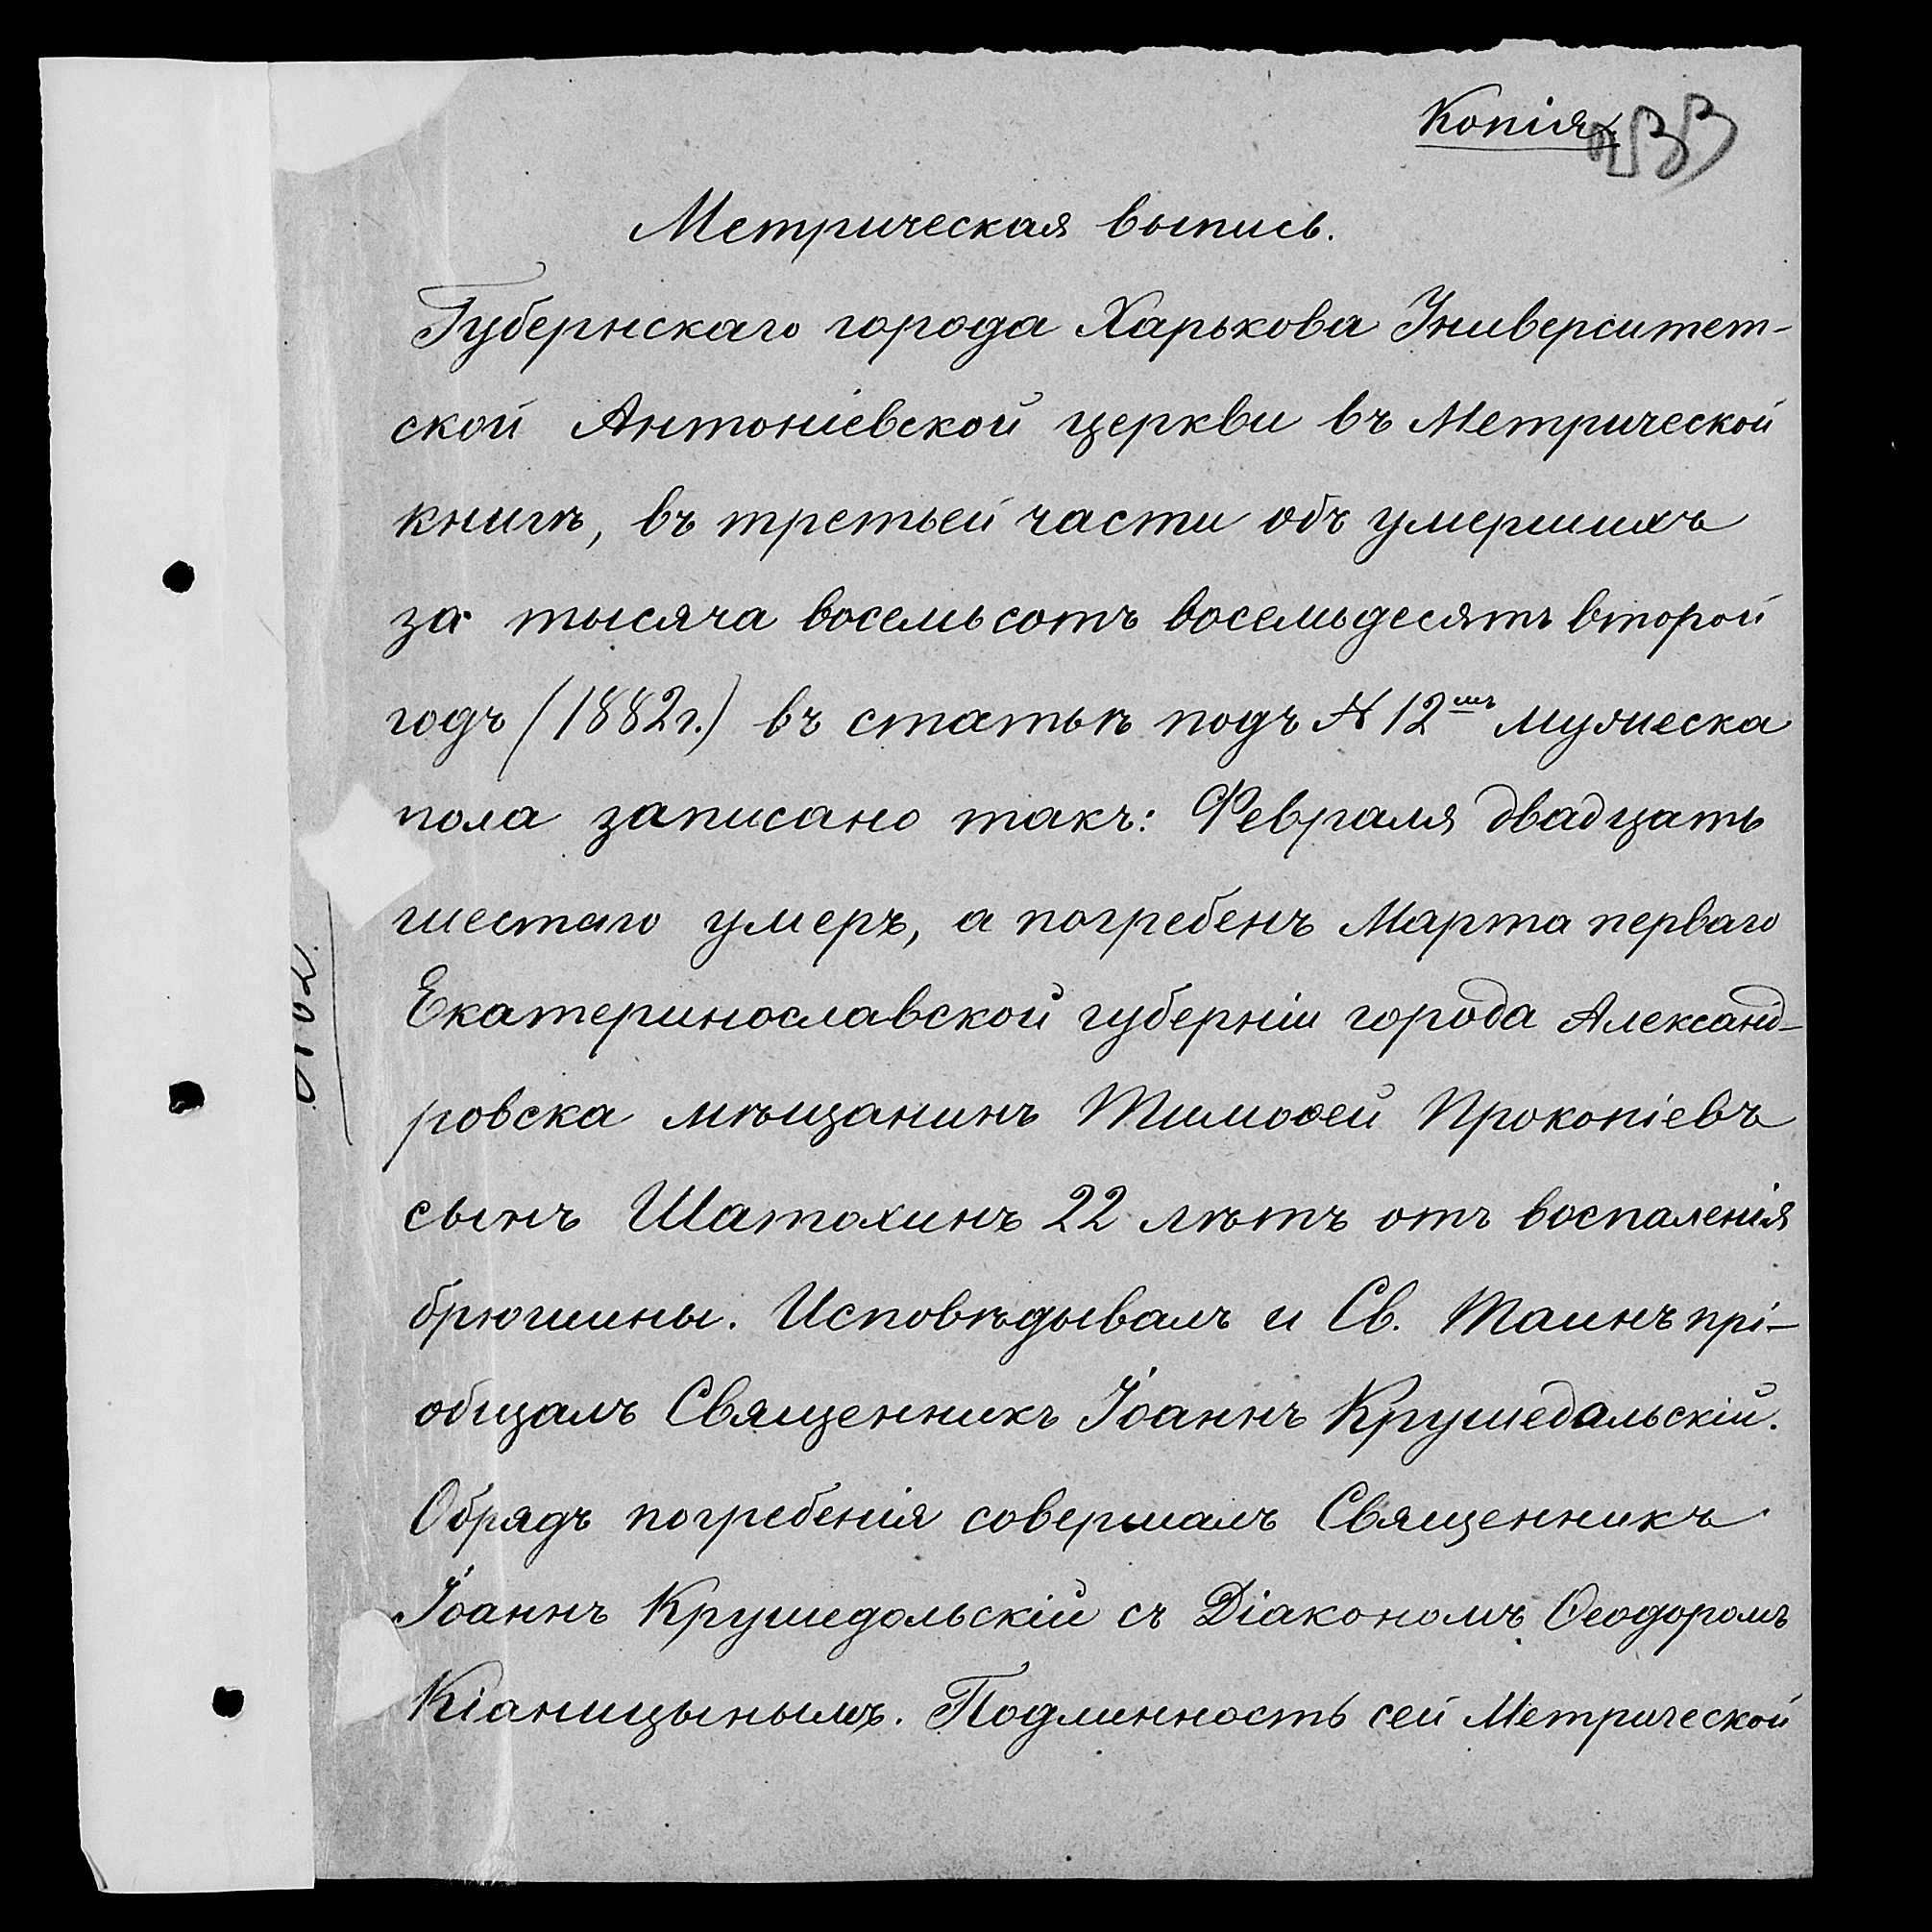 Копія
233
Метрическая выпись.
Губернскаго города Харькова Университет-
ской Антоніевской церкви въ Метрической
книгѣ, въ третьей части объ умершихъ
за тысяча восемьсотъ восемьдесятъ второй
годъ (1882 г.) въ статьѣ подъ № 12мъ мужеска
пола записано такъ: Февраля двадцать
шестаго умеръ, а погребенъ Марта перваго
Екатеринославской губерніи города Александ-
ровска мѣщанинъ Тимоѳей Прокопіевъ
сынъ Шатохинъ 22 лѣтъ отъ воспаленія
брюшины. Исповѣдывалъ и Св. Таинъ прі-
общалъ Священникъ Іоаннъ Крушедальскій.
Обрядъ погребенія совершалъ Священникъ
Іоаннъ Крушедольскій съ Діакономъ Ѳеодоромъ
Кіаницынымъ. Подлинность сей Метрической